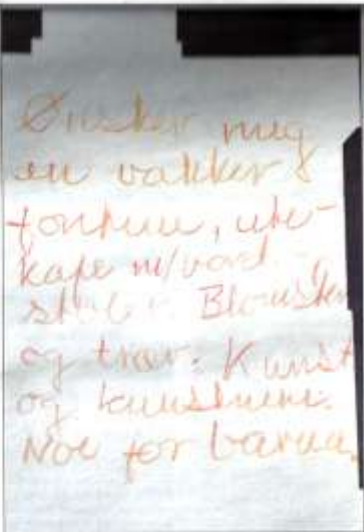 Ønsker meg
en vakker
fontene, ute-
kafe m/bord
Blomster
og trær. Kunst
og kunstnere.
Noe for barna.